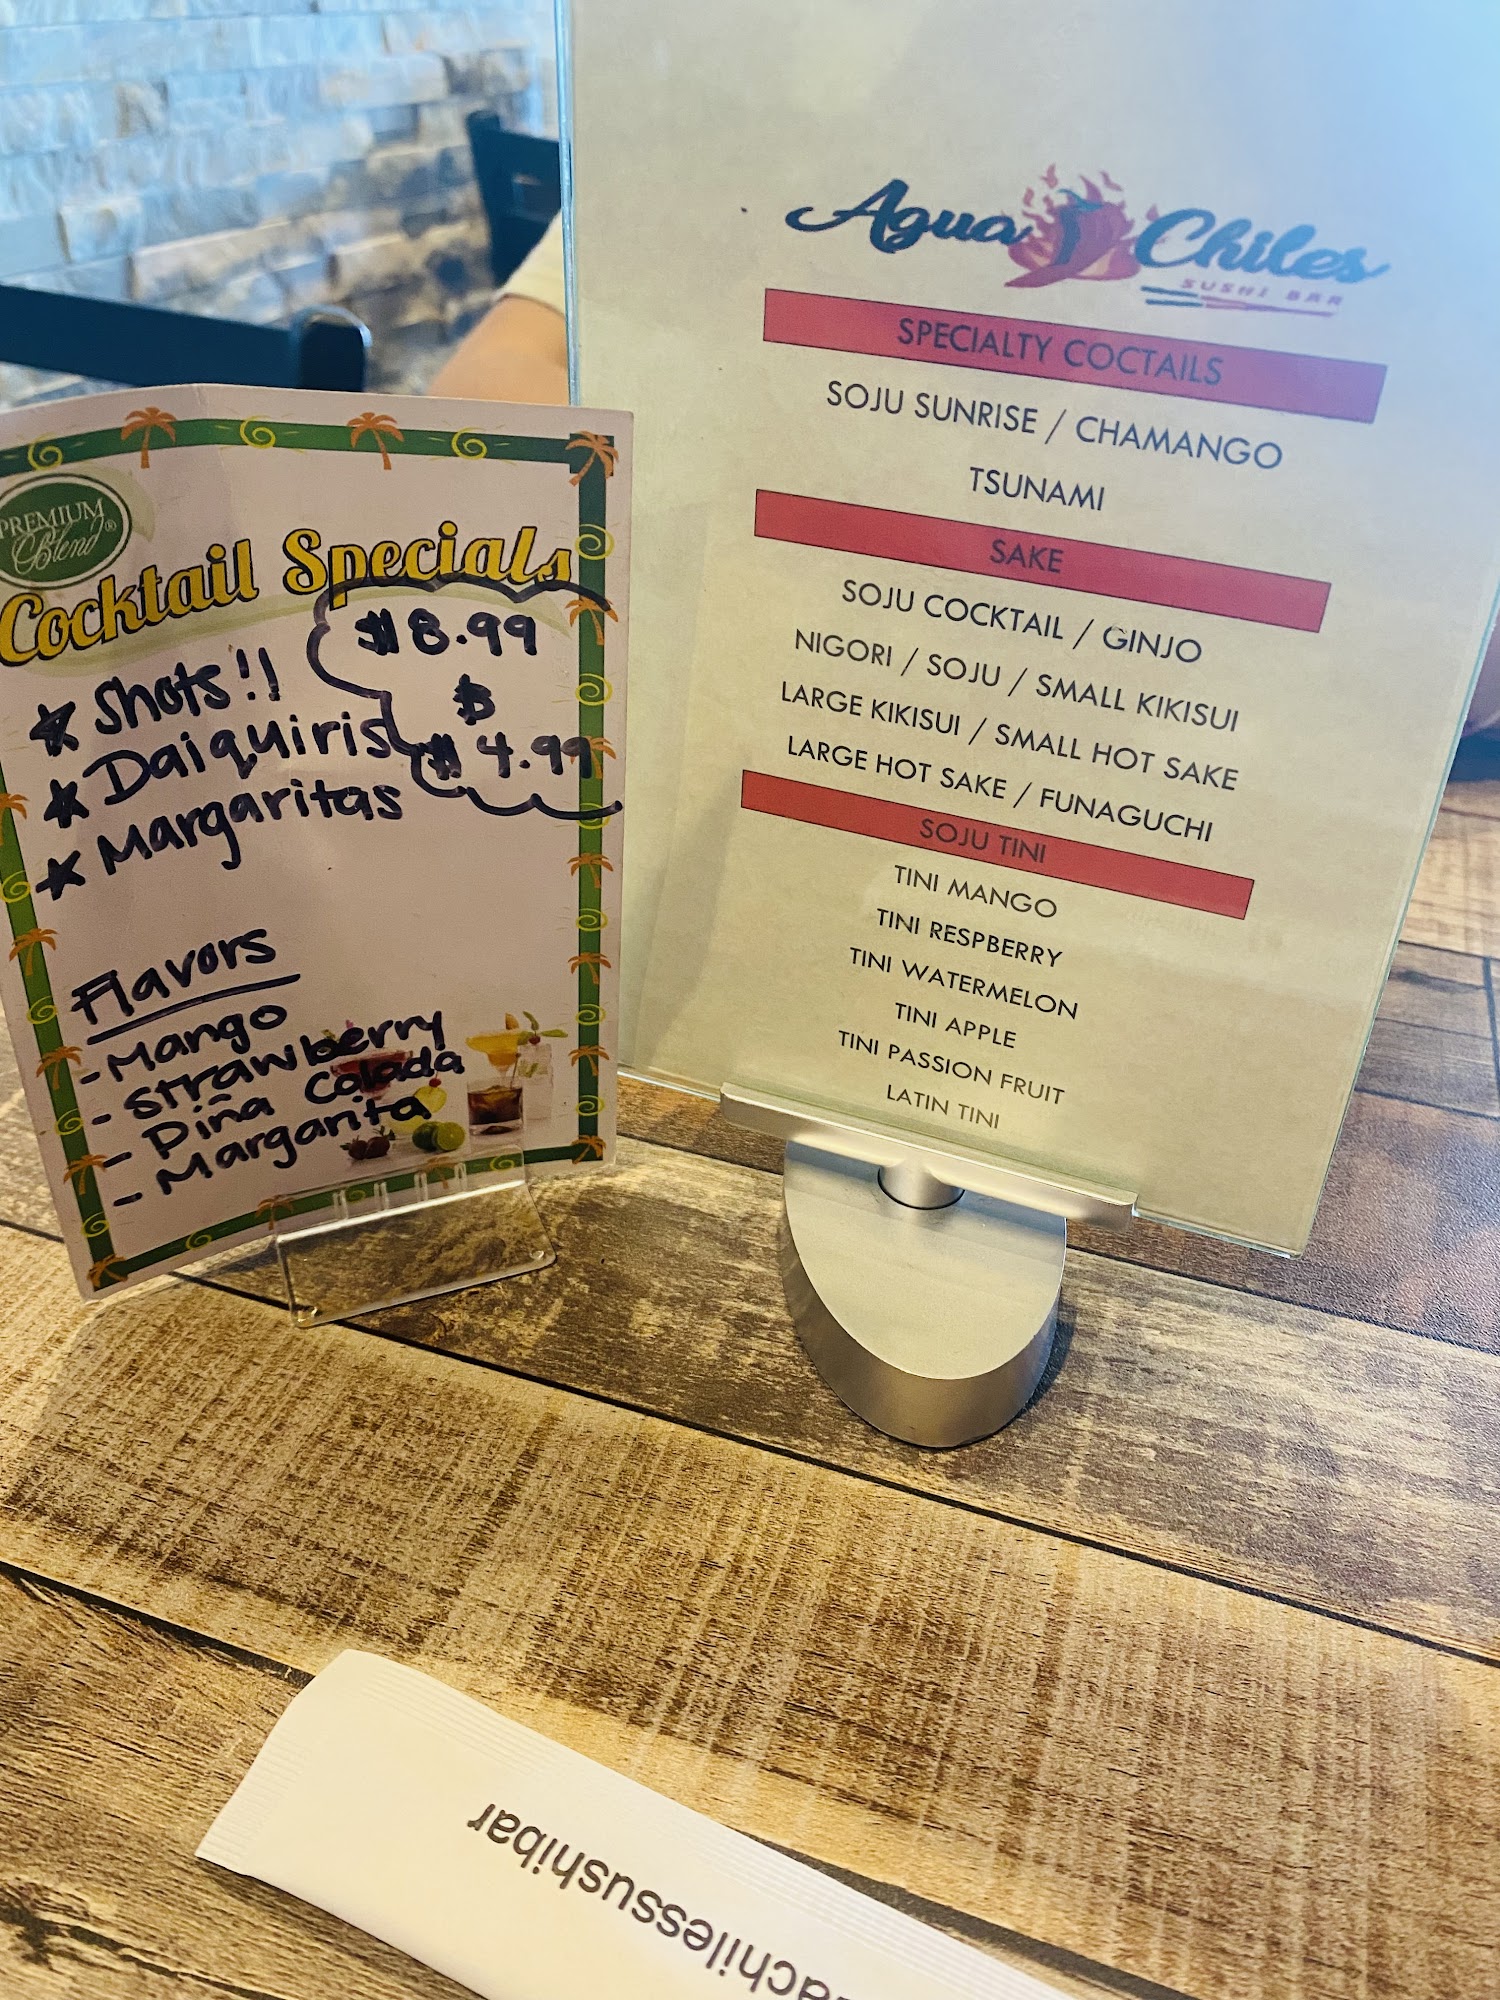 PREMIUM
Blend®
Cocktail Specials
$8.99
$
$4.99
★ Shots!!
★ Daiquiris
★ Margaritas
Flavors
- Mango
- Strawberry
- Piña Colada
- Margarita
Agua Chiles
SUSHI BAR
SPECIALTY COCTAILS
SOJU SUNRISE / CHAMANGO
TSUNAMI
SAKE
SOJU COCKTAIL / GINJO
NIGORI / SOJU / SMALL KIKISUI
LARGE KIKISUI / SMALL HOT SAKE
LARGE HOT SAKE / FUNAGUCHI
SOJU TINI
TINI MANGO
TINI RESPBERRY
TINI WATERMELON
TINI APPLE
TINI PASSION FRUIT
LATIN TINI
achilessushibar